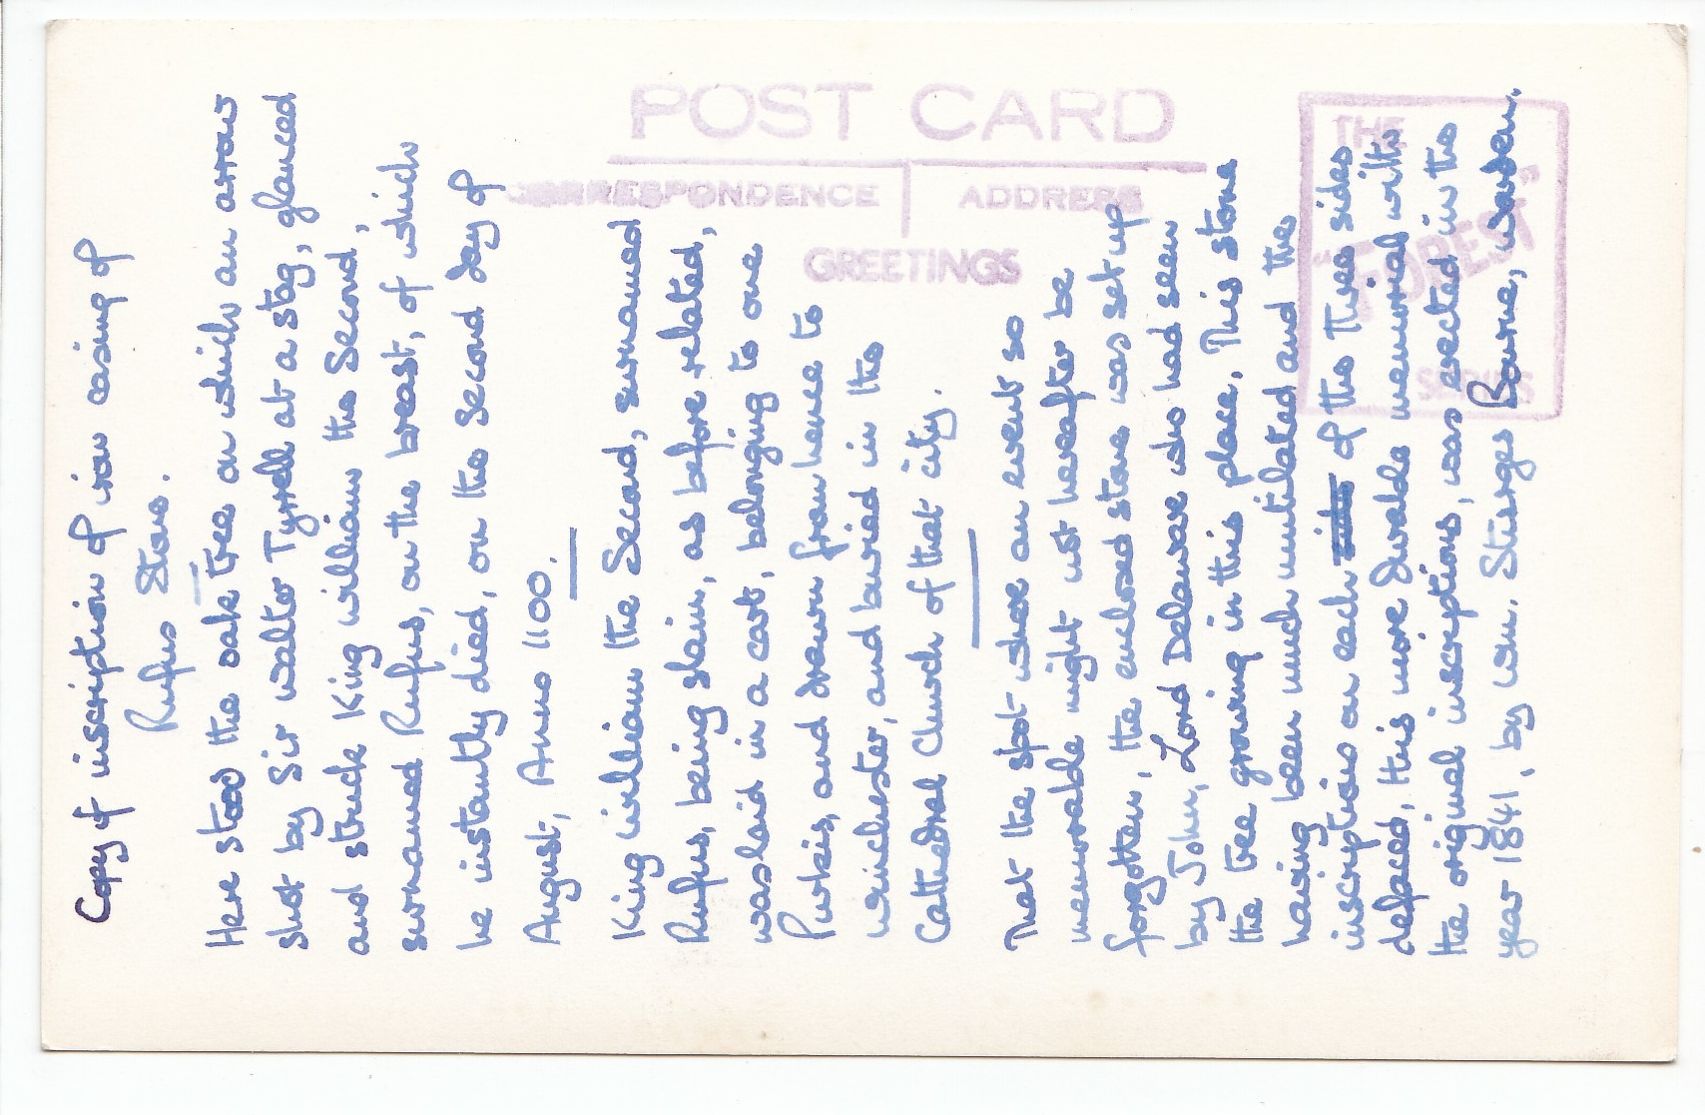 POST CARD
CORRESPONDENCE
ADDRESS
GREETINGS
THE
"FOREST"
SERIES
Copy of inscription of iron casing of
Rufus Stone.
Here stood the oak tree on which an arrow
shot by Sir Walter Tyrell at a stag, glanced
and struck King William the Second,
surnamed Rufus, on the breast, of which
he instantly died, on the second day of
August, Anno 1100.
King William the Second, surnamed
Rufus, being slain, as before related,
was laid in a cart, belonging to one
Purkis, and drawn from hence to
Winchester, and buried in the
Cathedral Church of that city.
That the spot where an event so
memorable might not hereafter be
forgotten, the enclosed stone was set up
by John, Lord Delaware who had seen
the tree growing in this place. This stone
having been much mutilated and the
inscriptions on each of the three sides
defaced, this more durable memorial with
the original inscriptions, was erected in the
year 1841, by Wm. Sturges Bourne, Warden.